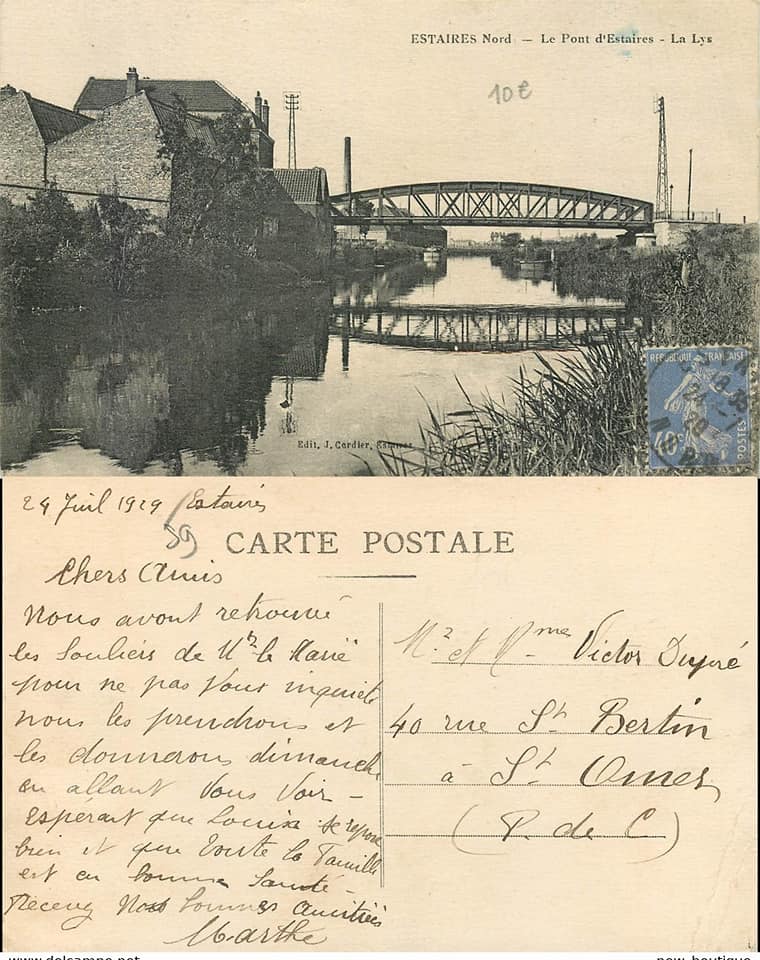 ESTAIRES Nord — Le Pont d'Estaires - La Lys
10€
Edit. J. Cordier, Estaires
REPUBLIQUE FRANÇAISE
40c
POSTES
24 Juil 1929 Estaires
59
CARTE POSTALE
Chers Amis
Nous avont retrouvé
les souliers de Mr le Marié
pour ne pas vous inquieté
nous les prendrons et
les donnerons dimanche
en allant vous voir -
Espérant que Louisa se repose
bien et que toute la famille
est en bonne santé -
Recevez Nos bonnes amitiés
Marthe
Mr et Mme Victor
40 rue St Bertin
à St Omer
(P. de C)
www.delcampe.net
new_boutique